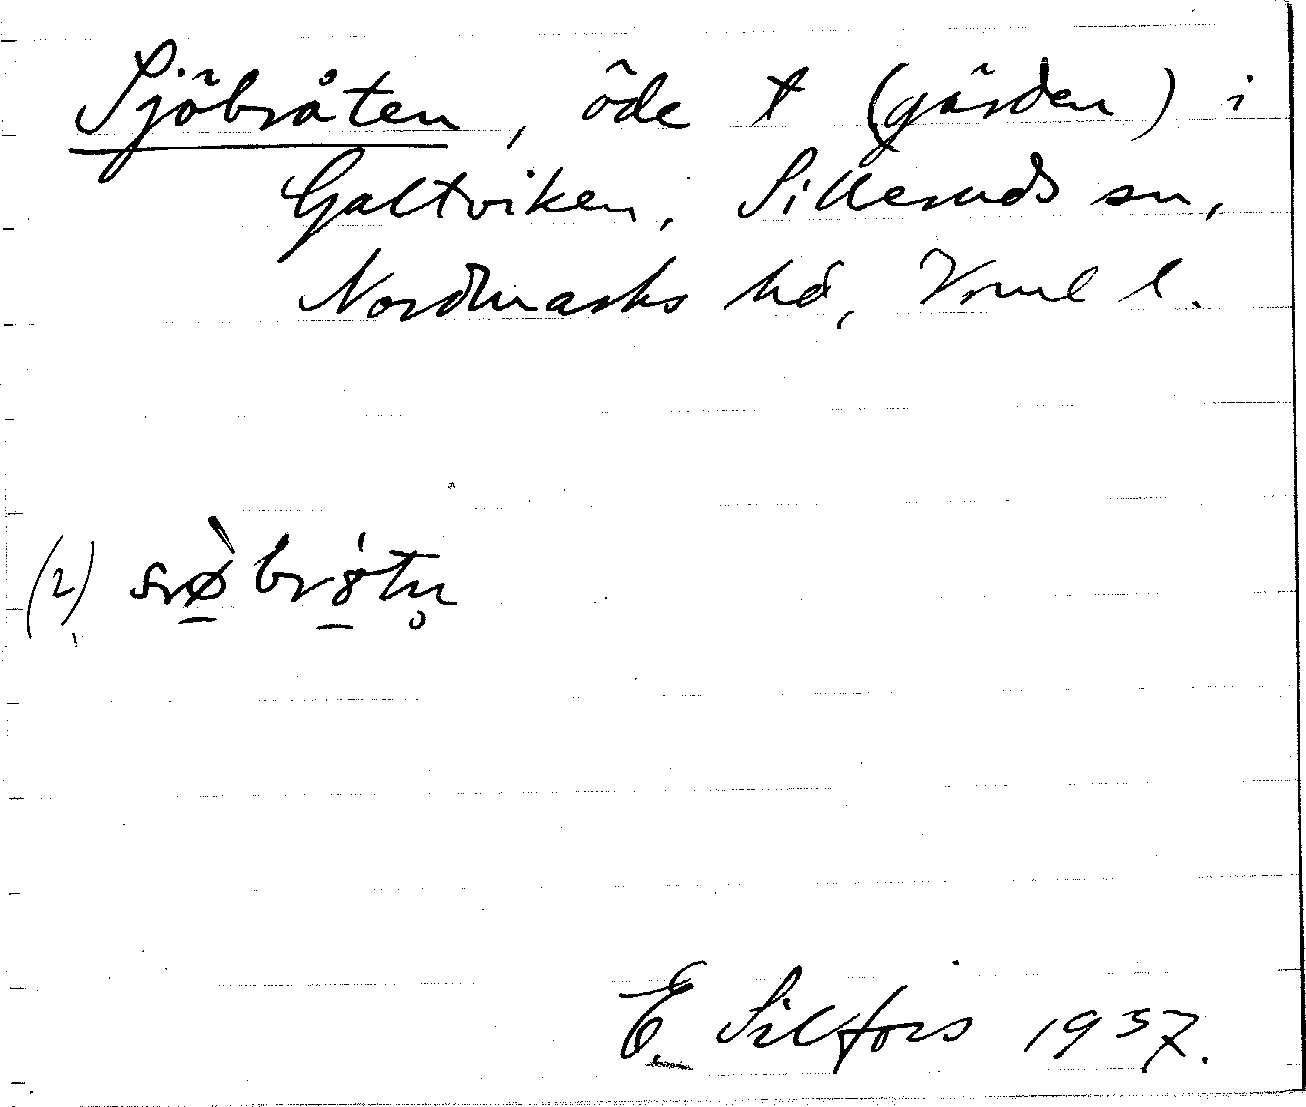 Sjöbråten, öde t (gården) i
Galtviken, Silleruds sn,
Nordmarks hd, Vrml l.
(2) sø̠̀brȣ̠́tn̥
E. Silfors 1937.